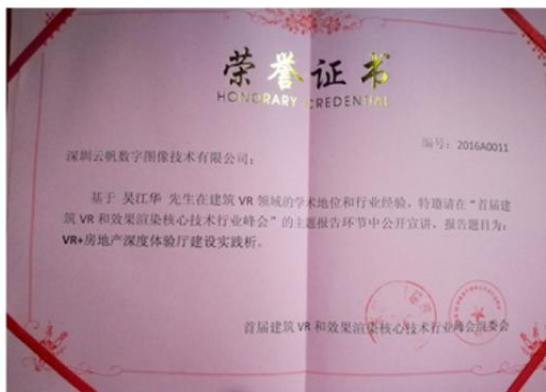 荣誉证书
HONORARY CREDENTIAL
编号：2016A0011
深圳云帆数字图像技术有限公司：
基于 吴江华 先生在建筑 VR 领域的学术地位和行业经验，特邀请在“首届建
筑 VR 和效果渲染核心技术行业峰会”的主题报告环节中公开宣讲，报告题目为：
VR+房地产深度体验厅建设实践析。
首届建筑 VR 和效果渲染核心技术行业峰会组委会